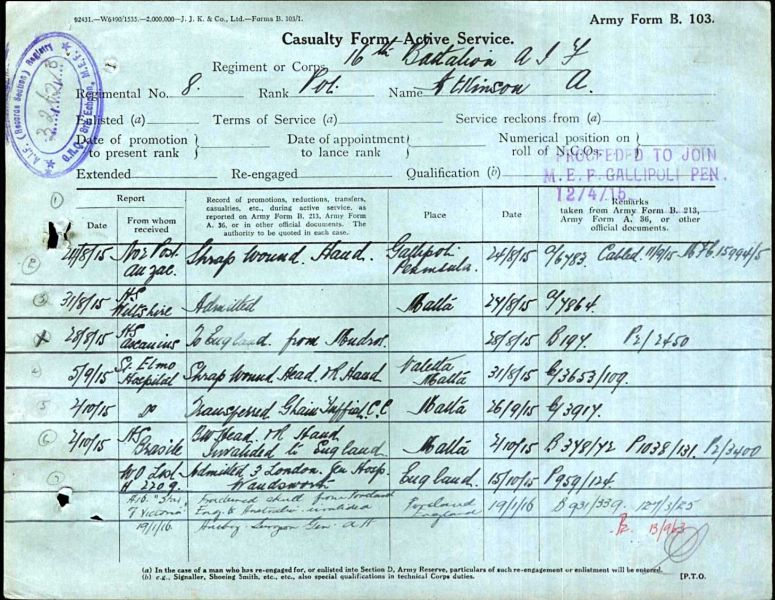 92431.—W6490/1535.—2,000,000—J. J. K. & Co., Ltd.—Forms B. 103/1.
Army Form B. 103.
Casualty Form—Active Service.
Regiment or Corps 16th Battalion A I F
Regimental No. 8. Rank Pte. Name Atkinson A.
Enlisted (a) Terms of Service (a) Service reckons from (a)
Date of promotion to present rank } Date of appointment to lance rank } Numerical position on roll of N.C.Os. }
Extended Re-engaged Qualification (b)
PROCEEDED TO JOIN
M.E.F. GALLIPOLI PEN.
12/4/15
A.I.F. (Records Section) Registry
G.H.Q. 3rd Echelon, M.E.F.
Report
Date
From whom received
Record of promotions, reductions, transfers, casualties, etc., during active service, as reported on Army Form B. 213, Army Form A. 36, or in other official documents. The authority to be quoted in each case.
Place
Date
Remarks
taken from Army Form B. 213, Army Form A. 36, or other official documents.
/8/15 No 2 Post Anzac Shrap Wound. Hand. Gallipoli Peninsula. 24/8/15 Cabled 11/9/15 15994/5
31/8/15 HS Wiltshire Admitted Malta 27/8/15 7864.
28/8/15 HS Ascanius To England from Mudros. 28/8/15 B194. P2/2450
5/9/15 St. Elmo Hospital Shrap Wound. Head. R Hand Valetta Malta 31/8/15 3653/109.
2/10/15 do Transferred Ghain Tuffieha C.C. Malta 26/9/15 3917.
2/10/15 HS Brasile BW Head. R Hand Invalided to England. Malta 2/10/15 B348/42 P1038/131. P2/3400
WO List H 2209. Admitted 3 London. Gen Hosp. Wandsworth England. 15/10/15 P959/124.
19/1/16. Fractured skull from Portland Eng. to Australia Portland England 19/1/16 B931/339. 127/3/25
13/963
(a) In the case of a man who has re-engaged for, or enlisted into Section D, Army Reserve, particulars of such re-engagement or enlistment will be entered.
(b) e.g., Signaller, Shoeing Smith, etc., etc., also special qualifications in technical Corps duties.
[P.T.O.